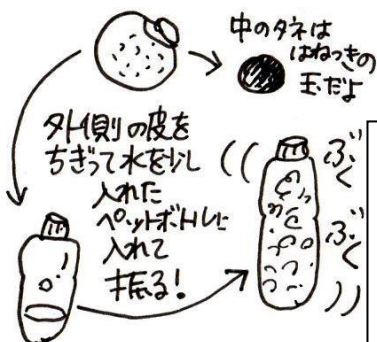 中のタネは
はねつきの
玉だよ
外側の皮を
ちぎって水を少し
入れた
ペットボトルに
入れて
振る！
ぶく
ぶく